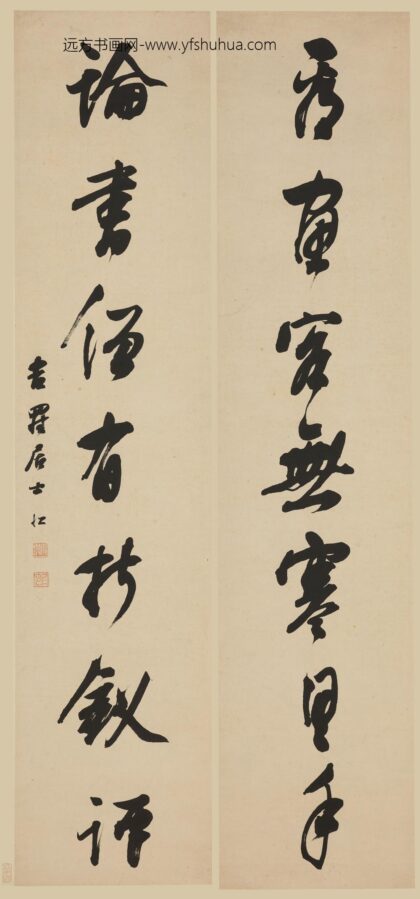 远方书画网-www.yfshuhua.com
看畫客無寒具手
論書僧有折釵評
吉羅居士仁